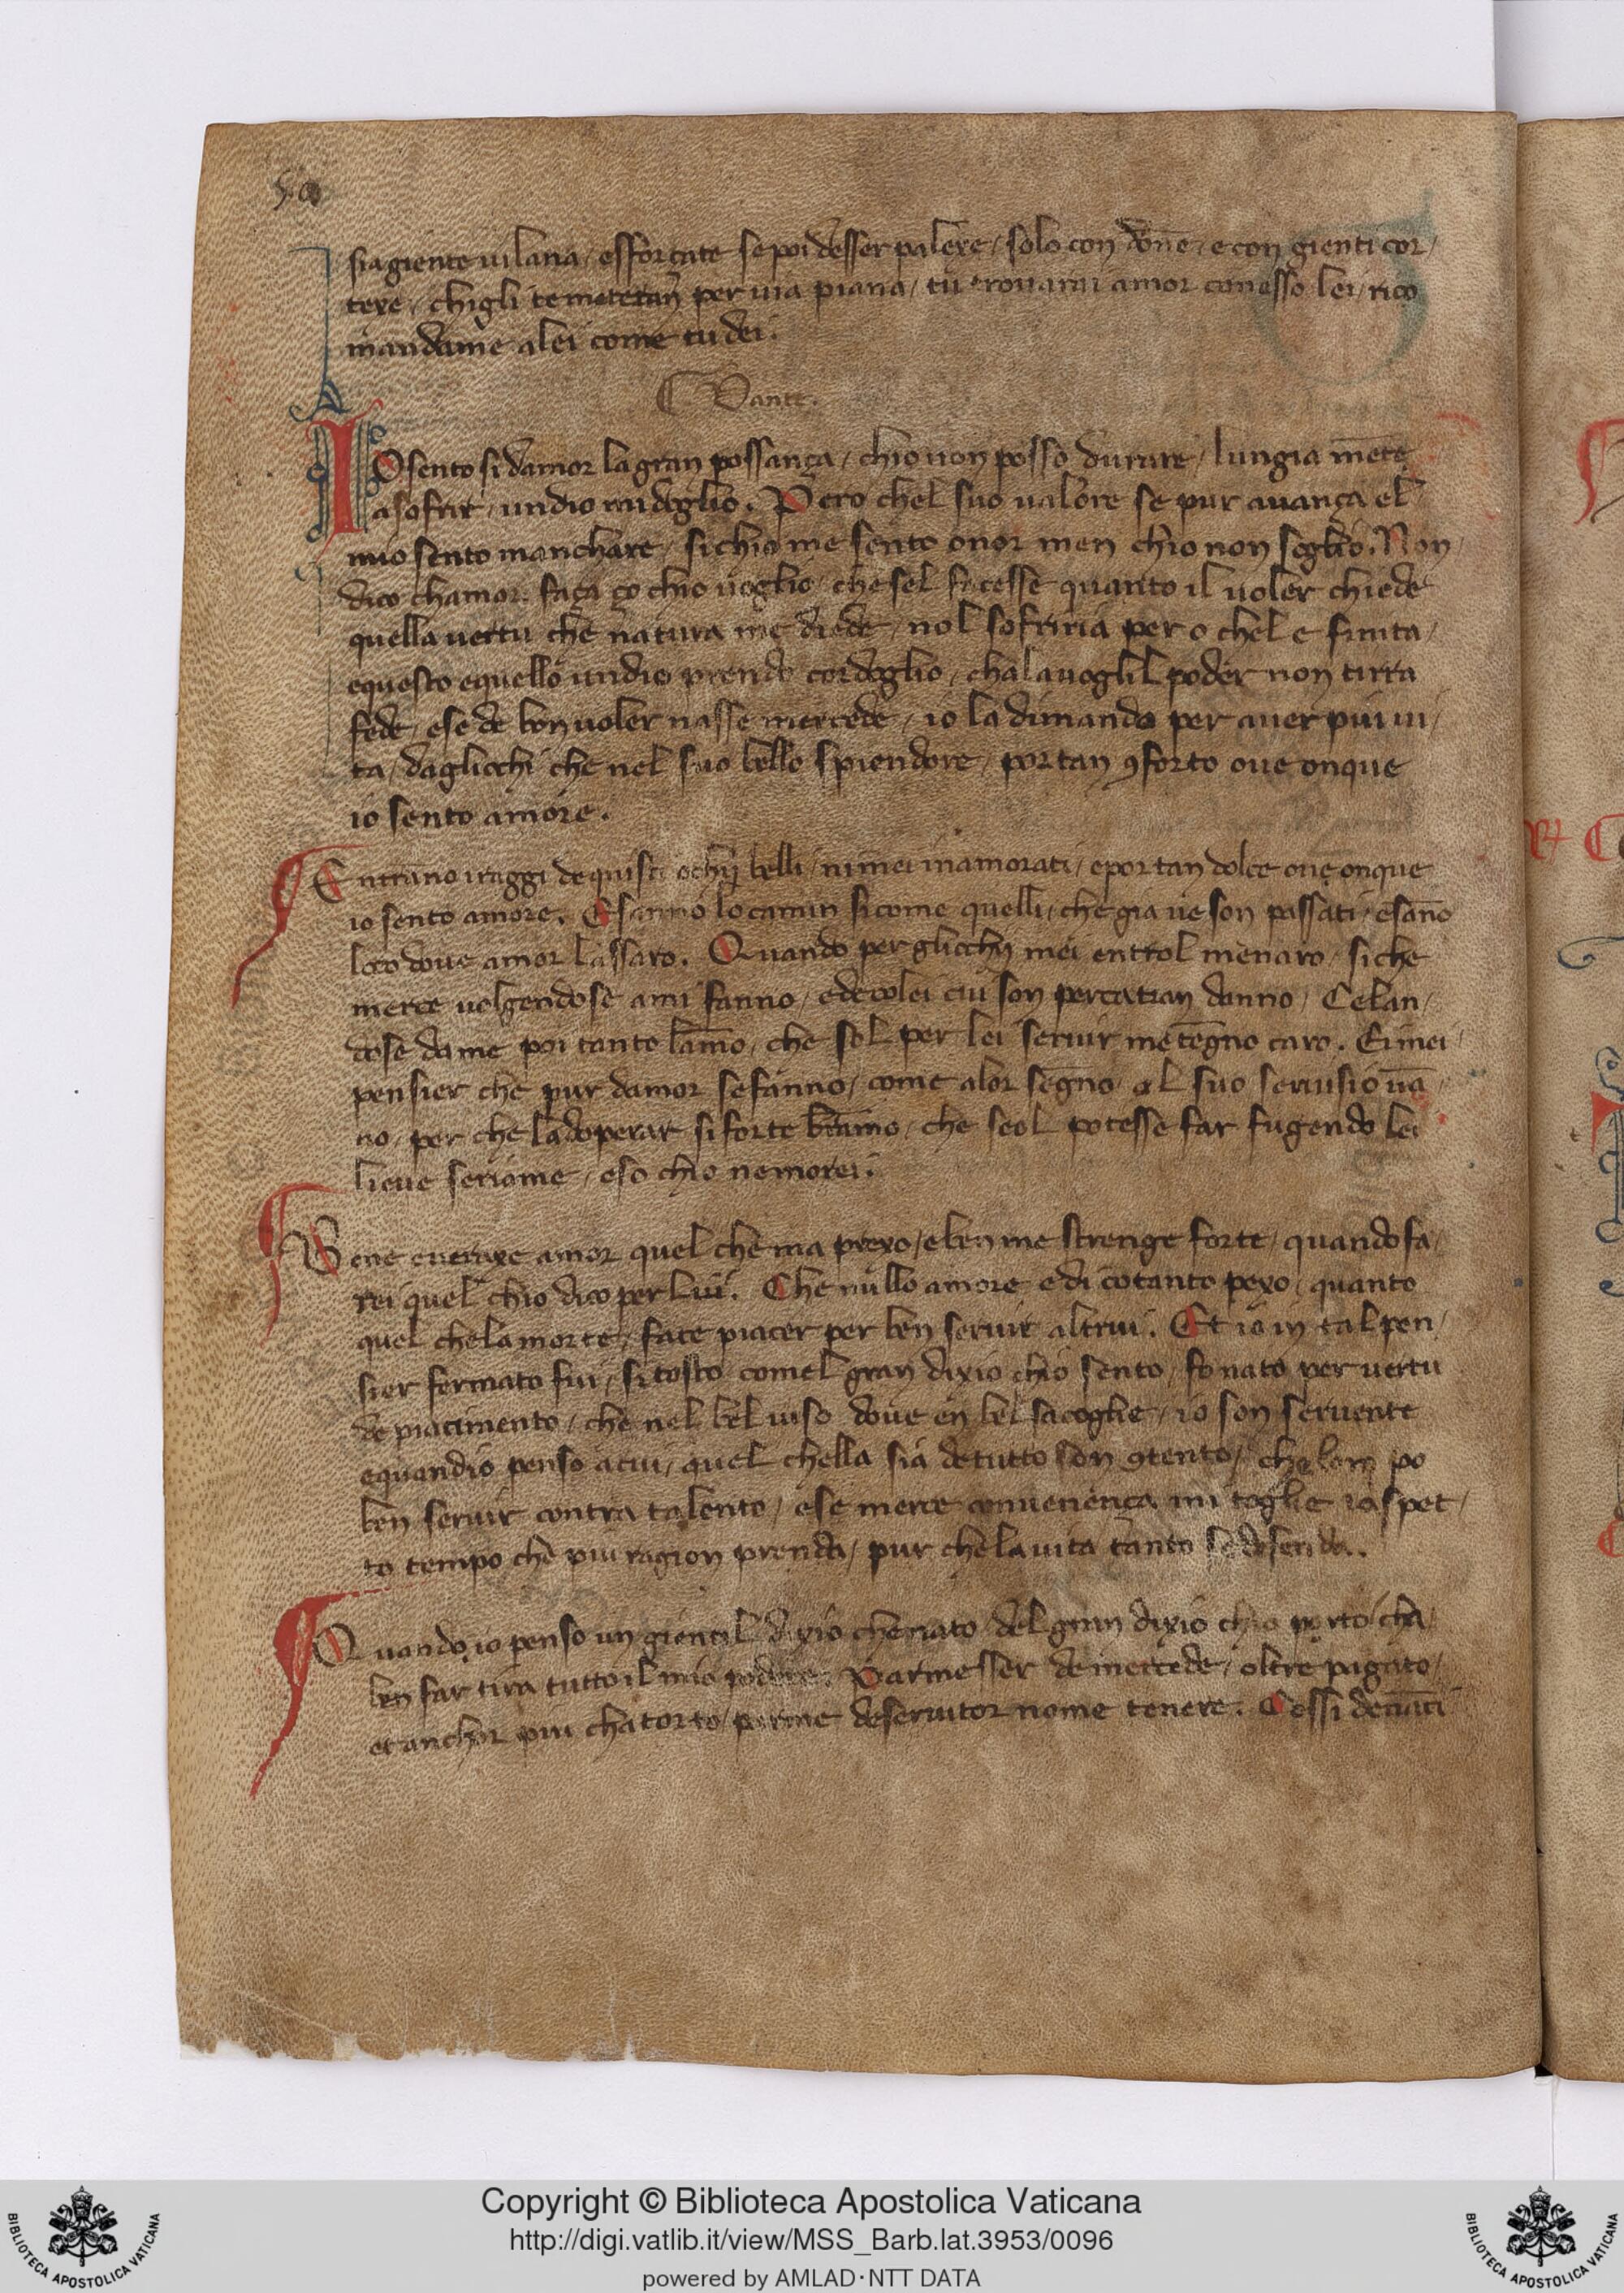 sia giente uilana / esforçate se poi desser palexe / solo con done / e con gienti cor /
texe / chigli te meteran per uia piana / tu trouarai amor con esso lei / rico
mandame a lei come tu dei.
Dante.
IO sento si damor la gran possança / chio non posso durare / lungia mẽte
a sofrir / undio mi doglio. Pero chel suo ualore se pur auança el
mio sento manchare / sichio me sento onor men chio non soglio. Non
dico chamor faça ço chio uoglio / che sel fecesse quanto il uoler chiede
quella uertu che natura me diede / nol sofriria per o chel e finita /
e questo e quello undio prendo cordoglio / chala uoglil poder non tirra
fede / e se de bon uoler nasse mercede / io la dimando per auer piu ui /
ta / dagliochi che nel suo bello spiendore / portan ꝯforto oue onque
io sento amore.
Entrãno i raggi de quisti ochij belli / ni miei inamorati / e portan dolce oue onque
io sento amore. E sanno lo camin si come quelli / che gia ue son passati / e sãno
loco doue amor lassaro. Quando per gliochij mei entrol menaro / si che
merce uolgendose a mi fanno / e de colei cui son percatian danno / Celan /
dose da me poi tanto lamo / che sol per lei seruir me tegno caro. Ei mei
pensier che pur damor se fanno / come a lor segno al suo seruisio uã
no / per che ladoperar si forte bramo / che seol potesse far fugendo lei
lieue seriame / e so chio ne morei.
Bene e ueraxe amor quel che ma prexo / e ben me strenge forte / quando fa /
rei quel chio dico per lui. Che nullo amore e di cotanto pexo / quanto
quel che la morte / face piacer per ben seruir altrui. Et io in tal pen /
sier fermato fui / si tosto comel gran dixio chio sento / fo nato per uertu
de piacimento / che nel bel uiso doue en bel sacoglie / io son seruente
e quandio penso a cui / quel chella sia de tutto son ꝯtento / che lom po
ben seruir contra talento / e se merce conuenença mi toglie io spet /
to tempo che piu ragion prenda / pur che la uita tanto se defenda.
Quando io penso un gientil dixio che nato del gran dixio chio porto / cha
ben far tira tutto il mio podere. Parmesser de mercede / oltre pagato /
et anchor piu cha torto / per me de seruitor nome tenere. Cossi denãci
Copyright © Biblioteca Apostolica Vaticana
http://digi.vatlib.it/view/MSS_Barb.lat.3953/0096
powered by AMLAD·NTT DATA
BIBLIOTECA APOSTOLICA VATICANA
BIBLIOTECA APOSTOLICA VATICANA